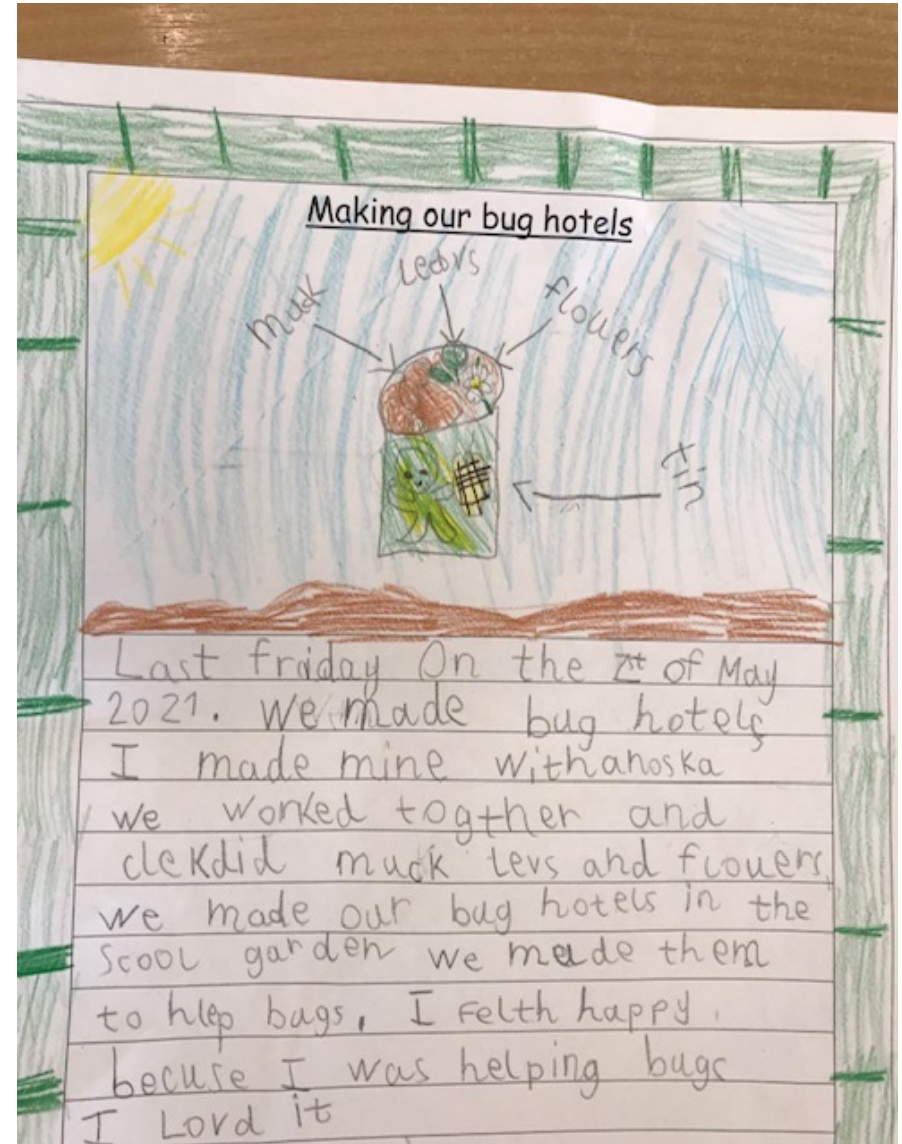 Making our bug hotels
muck
Leavs
flowers
tin
Last friday On the of May
2021. We made bug hotels
I made mine withanoska
we worked togther and
clekdid muck levs and flowers,
we made our bug hotels in the
scool garden we made them
to hlep bugs, I Felth happy.
becuse I was helping bugs
I Lovd it